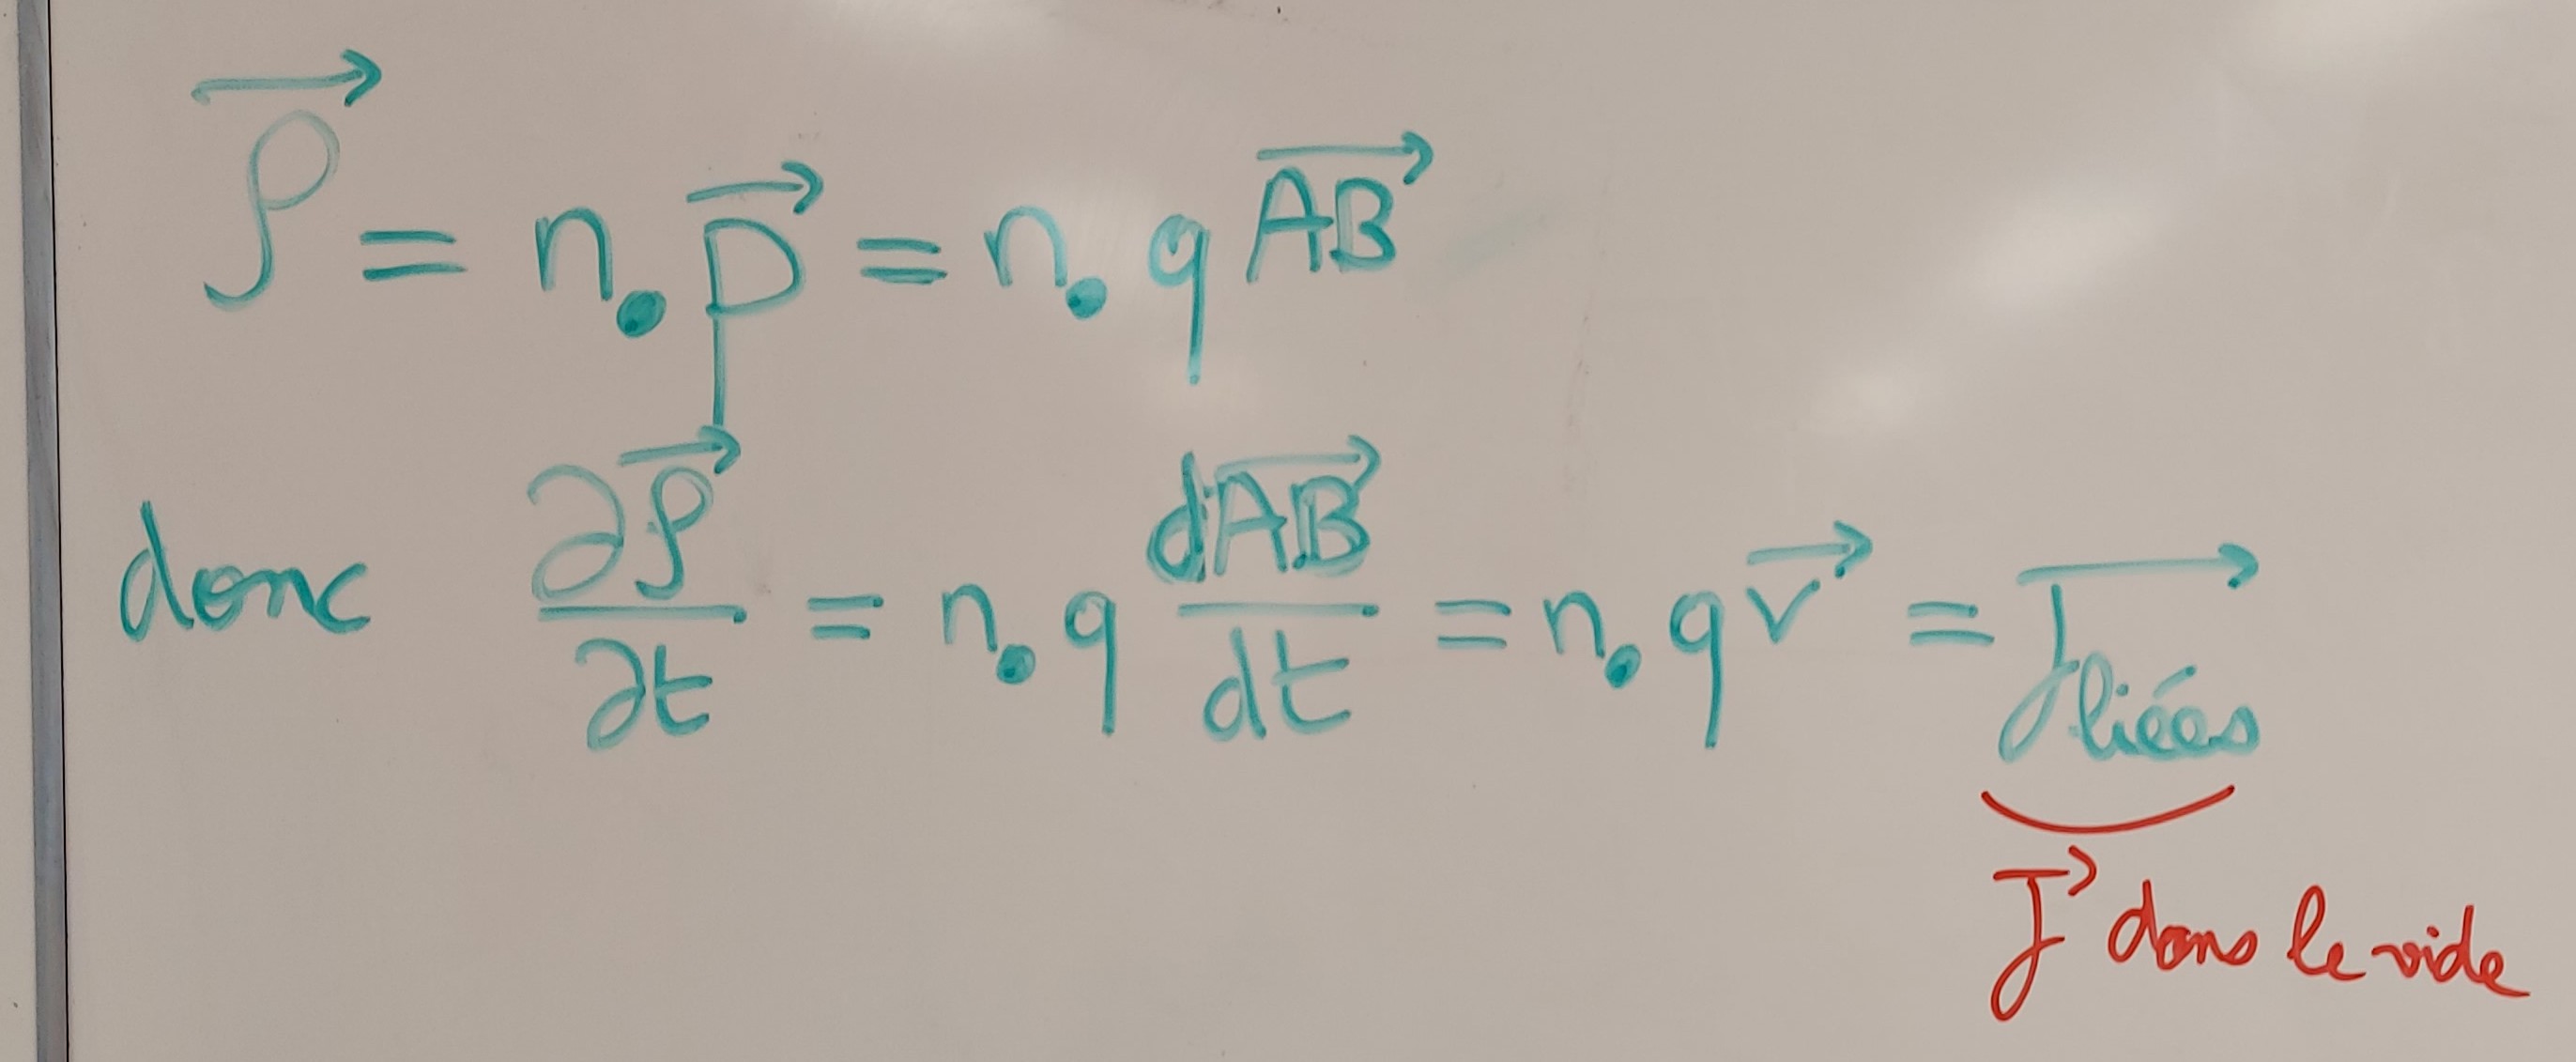 $\overrightarrow{\mathcal{P}} = n_{\bullet} \overrightarrow{p} = n_{\bullet} q \overrightarrow{AB}$
donc $\frac{\partial \overrightarrow{\mathcal{P}}}{\partial t} = n_{\bullet} q \frac{d\overrightarrow{AB}}{dt} = n_{\bullet} q \overrightarrow{v} = \overrightarrow{J_{liées}}$
$\overrightarrow{J}$ dans le vide